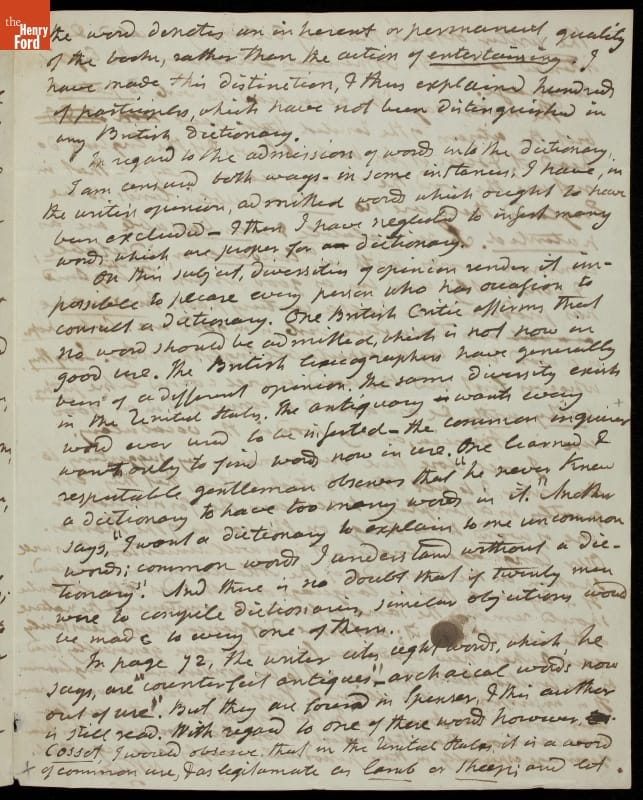 the Henry Ford
the word denotes an inherent or permanent quality
of the book, rather than the action of entertaining. I
have made this distinction, & thus explained hundreds
of participles, which have not been distinguished in
any British dictionary.
In regard to the admission of words into the dictionary,
I am censured both ways - in some instances, I have, in
the writer's opinion, admitted words which ought to have
been excluded - & then I have neglected to insert many
words which are proper for a dictionary.
On this subject, diversities of opinion render it im-
possible to please every person who has occasion to
consult a dictionary. One British Critic affirms that
no word should be admitted, which is not now in
good use. The British Lexicographers have generally
been of a different opinion. The same diversity exists
in the United States. The antiquary wants every
word ever used to be inserted - the common inquirer
wants only to find words now in use. One learned &
respectable gentleman observes that "he never knew
a dictionary to have too many words in it." Another
says, "I want a dictionary to explain to me uncommon
words; common words I understand without a dic-
tionary". And there is no doubt that if twenty men
were to compile dictionaries, similar objections would
be made to every one of them.
In page 72, the writer cites eight words, which, he
says, are "counterfeit antiques" - archaical words now
out of use". But they are found in Spenser, & this author
is still read. With regard to one of these words however,
Cosset, I would observe, that in the United States, it is a word
of common use, & as legitimate as lamb or sheep; and